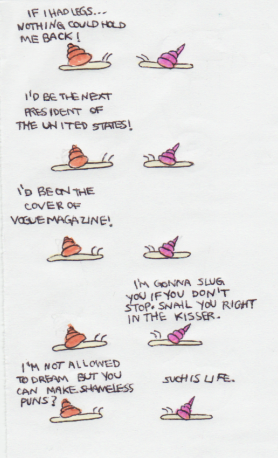 IF I HAD LEGS...
NOTHING COULD HOLD
ME BACK!
I'D BE THE NEXT
PRESIDENT OF
THE UNITED STATES!
I'D BE ON THE
COVER OF
VOGUE MAGAZINE!
I'M GONNA SLUG
YOU IF YOU DON'T
STOP. SNAIL YOU RIGHT
IN THE KISSER.
I'M NOT ALLOWED
TO DREAM BUT YOU
CAN MAKE SHAMELESS
PUNS?
SUCH IS LIFE.